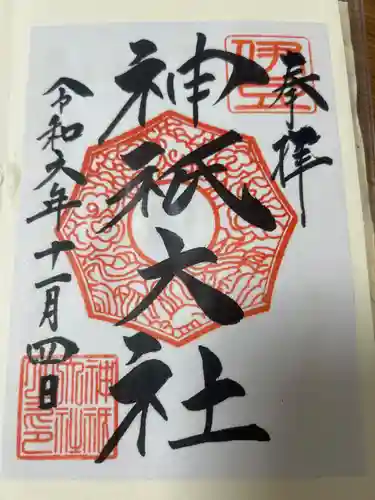 奉拝
伊豆
神祇大社
令和六年十一月四日
神祇
大社
之印